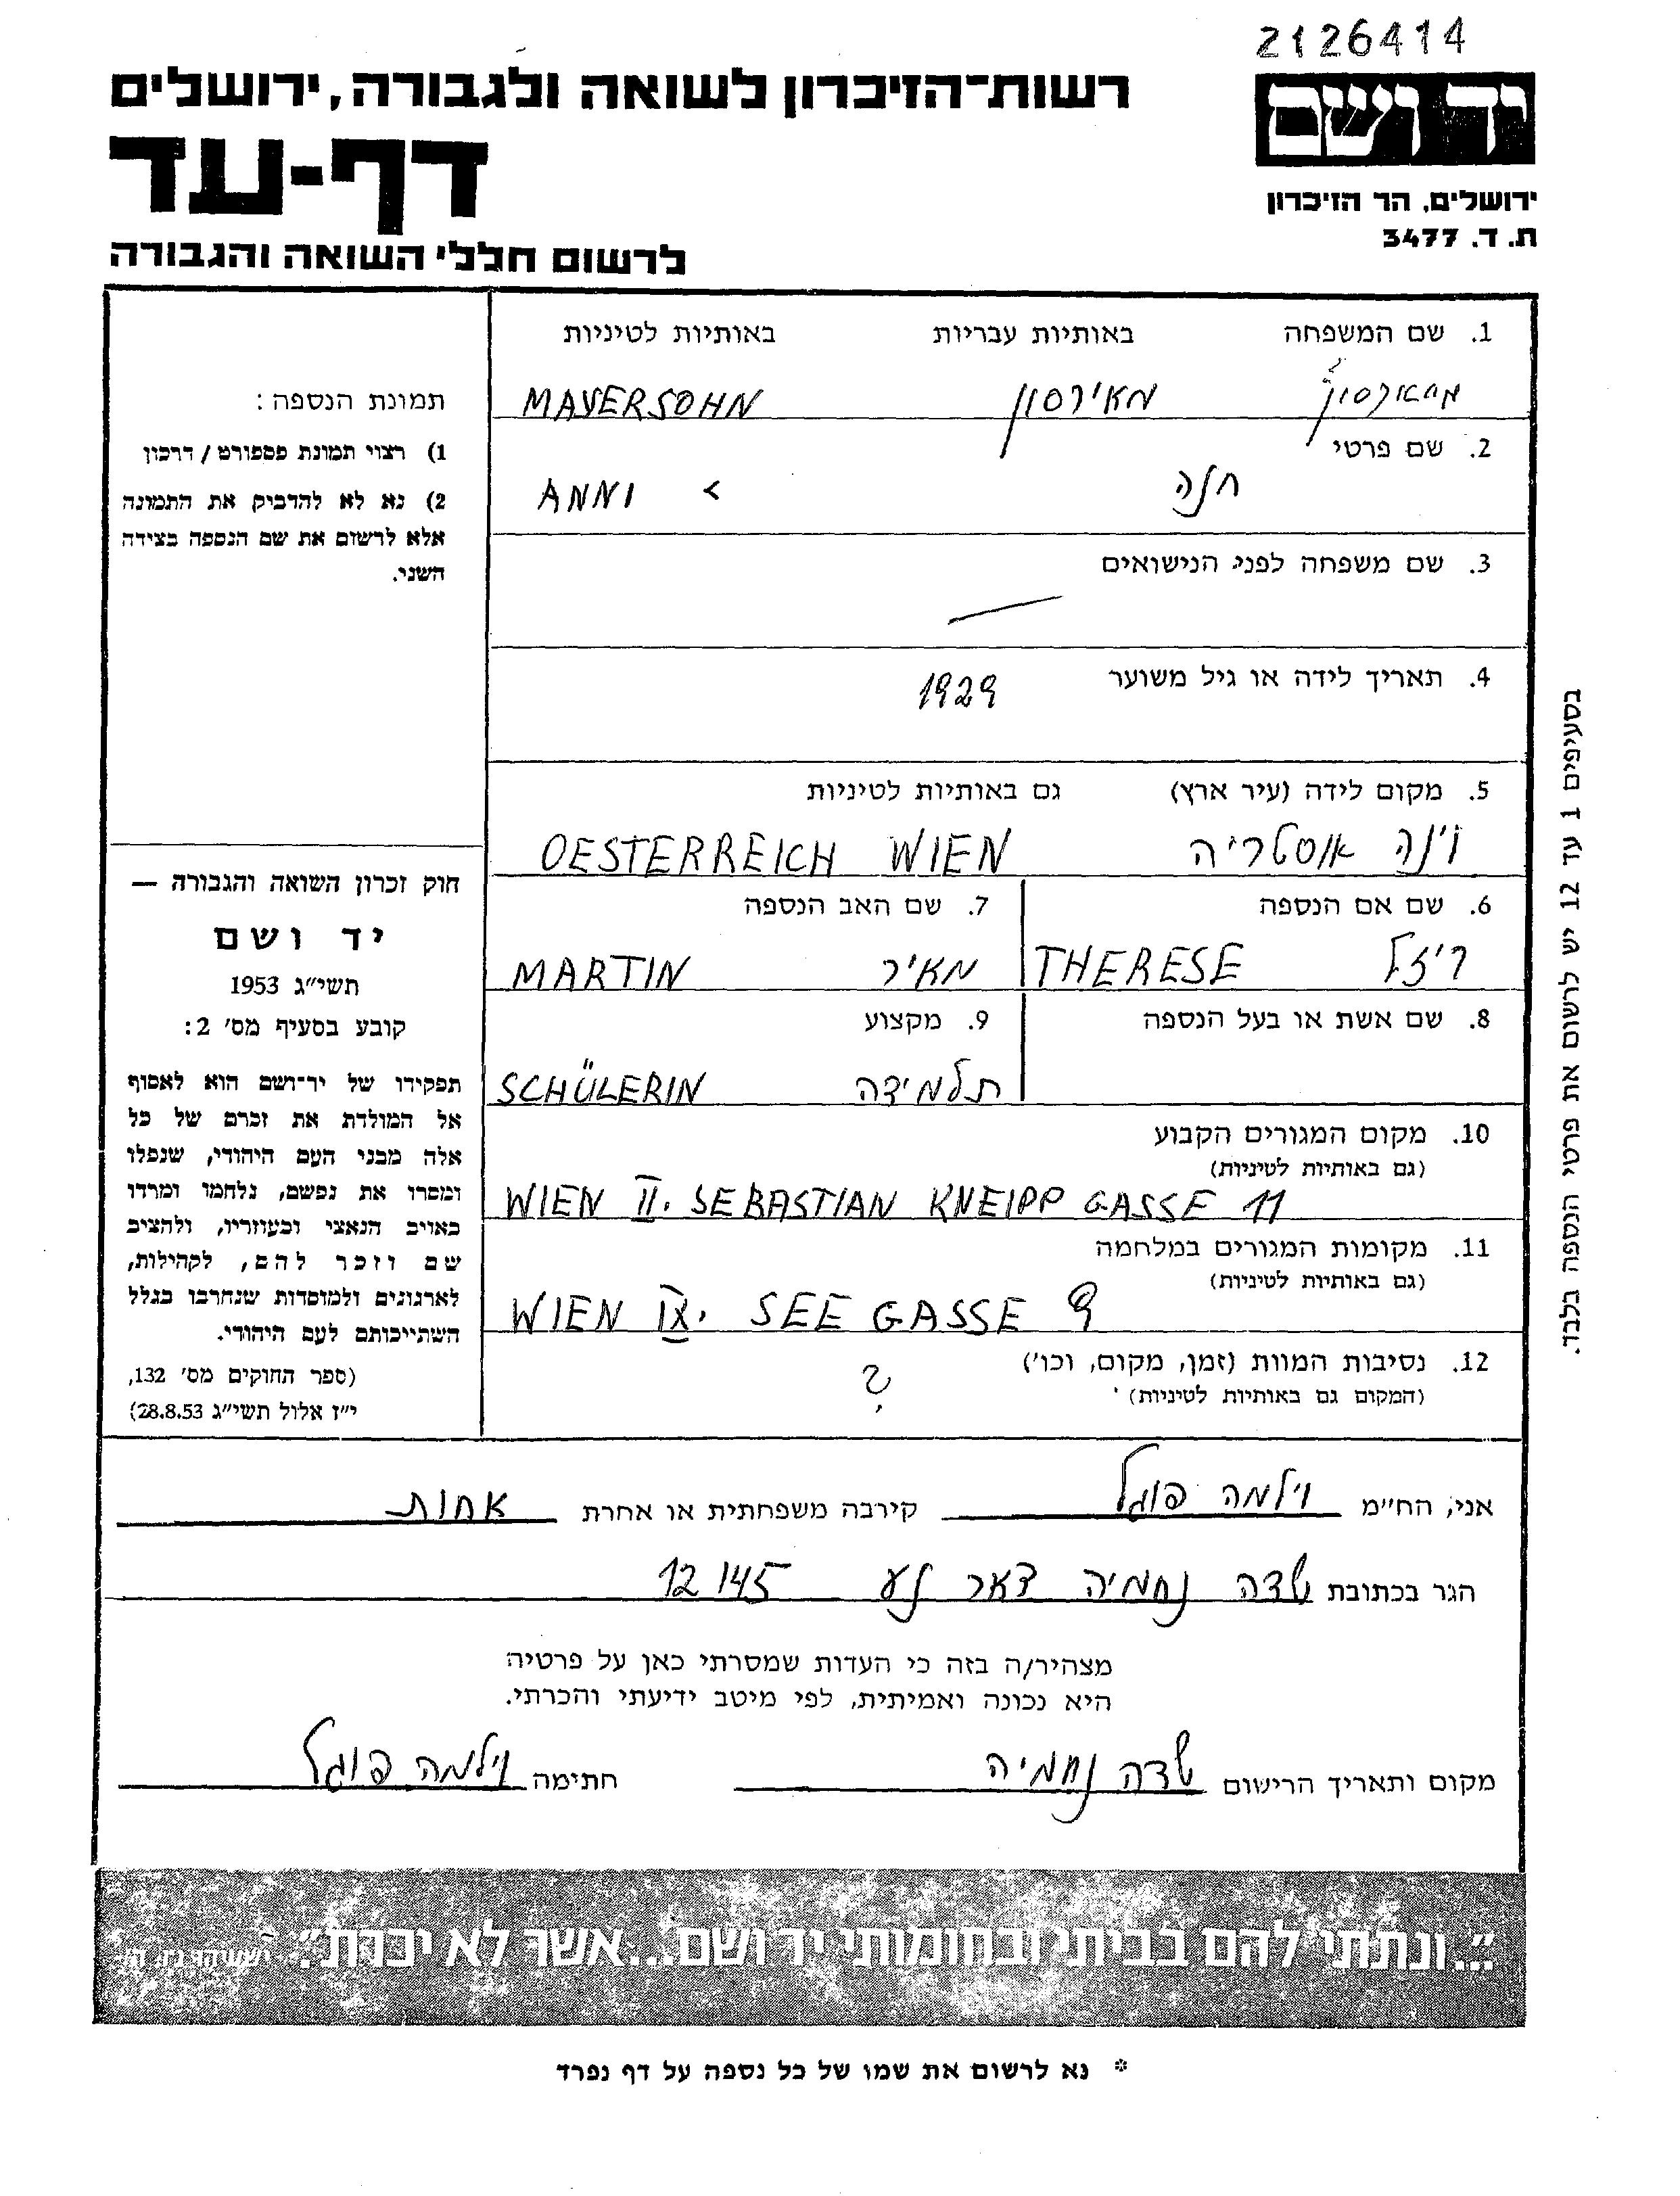 2126414
יד ושם
ירושלים, הר הזיכרון
ת.ד. 3477
רשות־הזיכרון לשואה ולגבורה, ירושלים
דף-עד
לרשום חללי השואה והגבורה
1. שם המשפחה באותיות עבריות באותיות לטיניות
מאירסון MAYERSOHN
2. שם פרטי
חנה > ANNI
3. שם משפחה לפני הנישואים
4. תאריך לידה או גיל משוער
1929
5. מקום לידה (עיר ארץ) גם באותיות לטיניות
וינה אוסטריה OESTERREICH WIEN
6. שם אם הנספה
ריזל THERESE
7. שם האב הנספה
מאיר MARTIN
8. שם אשת או בעל הנספה
9. מקצוע
תלמידה SCHÜLERIN
10. מקום המגורים הקבוע
(גם באותיות לטיניות)
WIEN II. SEBASTIAN KNEIPP GASSE 11
11. מקומות המגורים במלחמה
(גם באותיות לטיניות)
WIEN IX. SEE GASSE 9
12. נסיבות המוות (זמן, מקום, וכו')
(המקום גם באותיות לטיניות)
?
תמונת הנספה:
1) רצוי תמונת פספורט / דרכון
2) נא לא להדביק את התמונה
אלא לרשום את שם הנספה בצידה
השני.
חוק זכרון השואה והגבורה —
יד ושם
תשי"ג 1953
קובע בסעיף מס' 2:
תפקידו של יד־ושם הוא לאסוף
אל המולדת את זכרם של כל
אלה מבני העם היהודי, שנפלו
ומסרו את נפשם, נלחמו ומרדו
באויב הנאצי ובעוזריו, ולהציב
שם וזכר להם, לקהילות,
לארגונים ולמוסדות שנחרבו בגלל
השתייכותם לעם היהודי.
(ספר החוקים מס' 132,
י"ז אלול תשי"ג 28.8.53)
בסעיפים 1 עד 12 יש לרשום את פרטי הנספה בלבד.
אני, הח"מ וילמה פוגל קירבה משפחתית או אחרת אחות
הגר בכתובת שדה נחמיה דאר נע 12145
מצהיר/ה בזה כי העדות שמסרתי כאן על פרטיה
היא נכונה ואמיתית, לפי מיטב ידיעתי והכרתי.
מקום ותאריך הרישום שדה נחמיה חתימה וילמה פוגל
"...ונתתי להם בביתי ובחומותי יד ושם...אשר לא יכרת". ישעיהו נו, ה'
* נא לרשום את שמו של כל נספה על דף נפרד